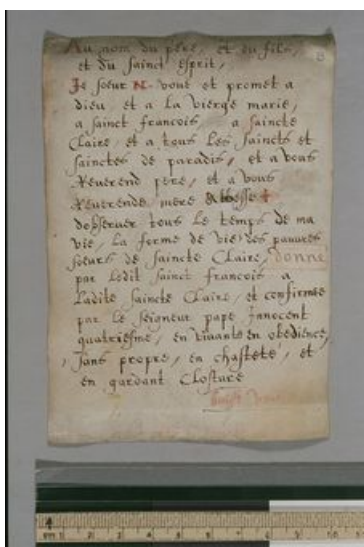 Au nom du pere, et du fils,
et du sainct esprit,
Je soeur N. voue et promet a
dieu, et a la vierge marie,
a sainct francois a saincte
Claire, et a tous les saincts et
sainctes de paradis, et a vous
Reverend pere, et a vous
Reverende mere Abbesse +
dobserver tous le temps de ma
vie, la forme de vie des pauures
soeurs de saincte Claire, donne
par ledit sainct francois a
Ladite saincte Claire, et confirmee
par le seigneur pape Innocent
quatriesme, en vivants en obedience,
sans propre, en chastete, et
en gardant Closture